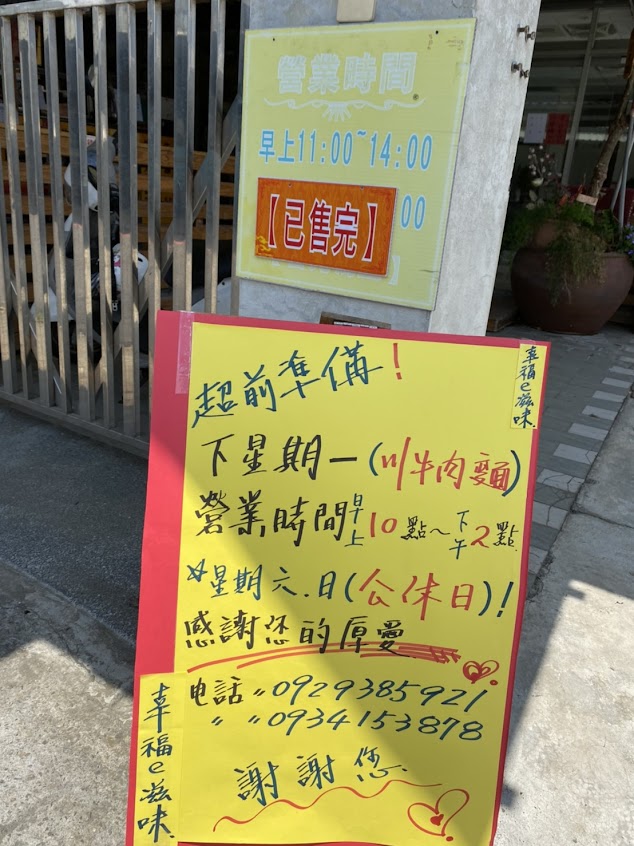 營業時間
早上11:00~14:00
【已售完】
00
】
幸福e滋味
超前準備!
下星期一(川牛肉麵)
營業時間早上10點~下午2點.
星期六.日(公休日)!
感謝您的厚愛
电話〃0929385921
〃 〃0934153878
謝謝您.
幸福e滋味.